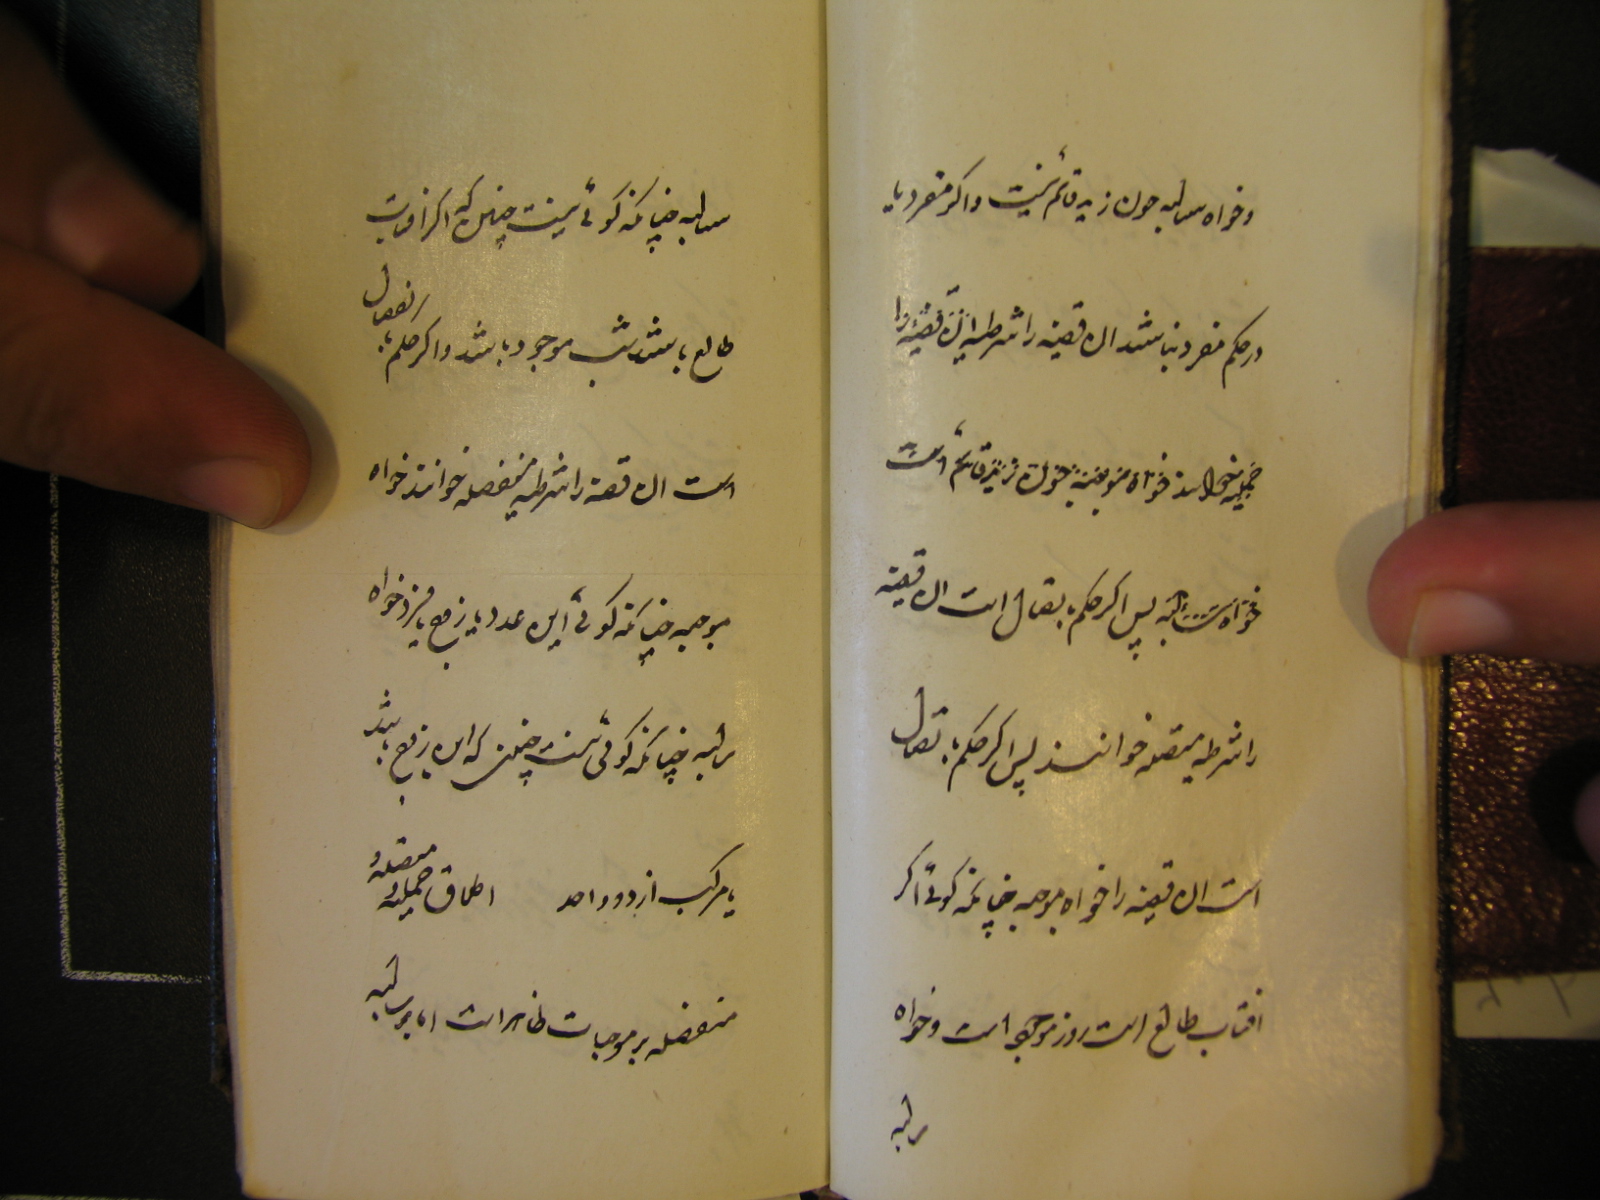 وخواه سالبه چون زید قائم نیست واکر مفرد یا
در حکم مفرد نباشد ان قضیه را شرطیه این قضیه را
حملیه خوانند خواه موجبه چون زید قائم است
خواه سالبه پس اکر حکم باتصال است ان قضیه
را شرطیه متصله خوانند پس اکر حکم باتصال
است ان قضیه را خواه موجبه چنانکه کوئی اکر
افتاب طالع است روز موجود است وخواه
سالبه
سالبه چنانکه کوئی نیست چنین که اکر افتاب
طالع باشد شب موجود باشد واکر حکم بانفصال
است ان قضیه را شرطیه منفصله خوانند خواه
موجبه چنانکه کوئی این عدد یا زوج یا فرد خواه
سالبه چنانکه کوئی نیست چنین که این زوج باشد
یا مرکب از دو واحد اطلاق حملیه و متصله و
منفصله بر موجبات ظاهر است اما بر سالبه